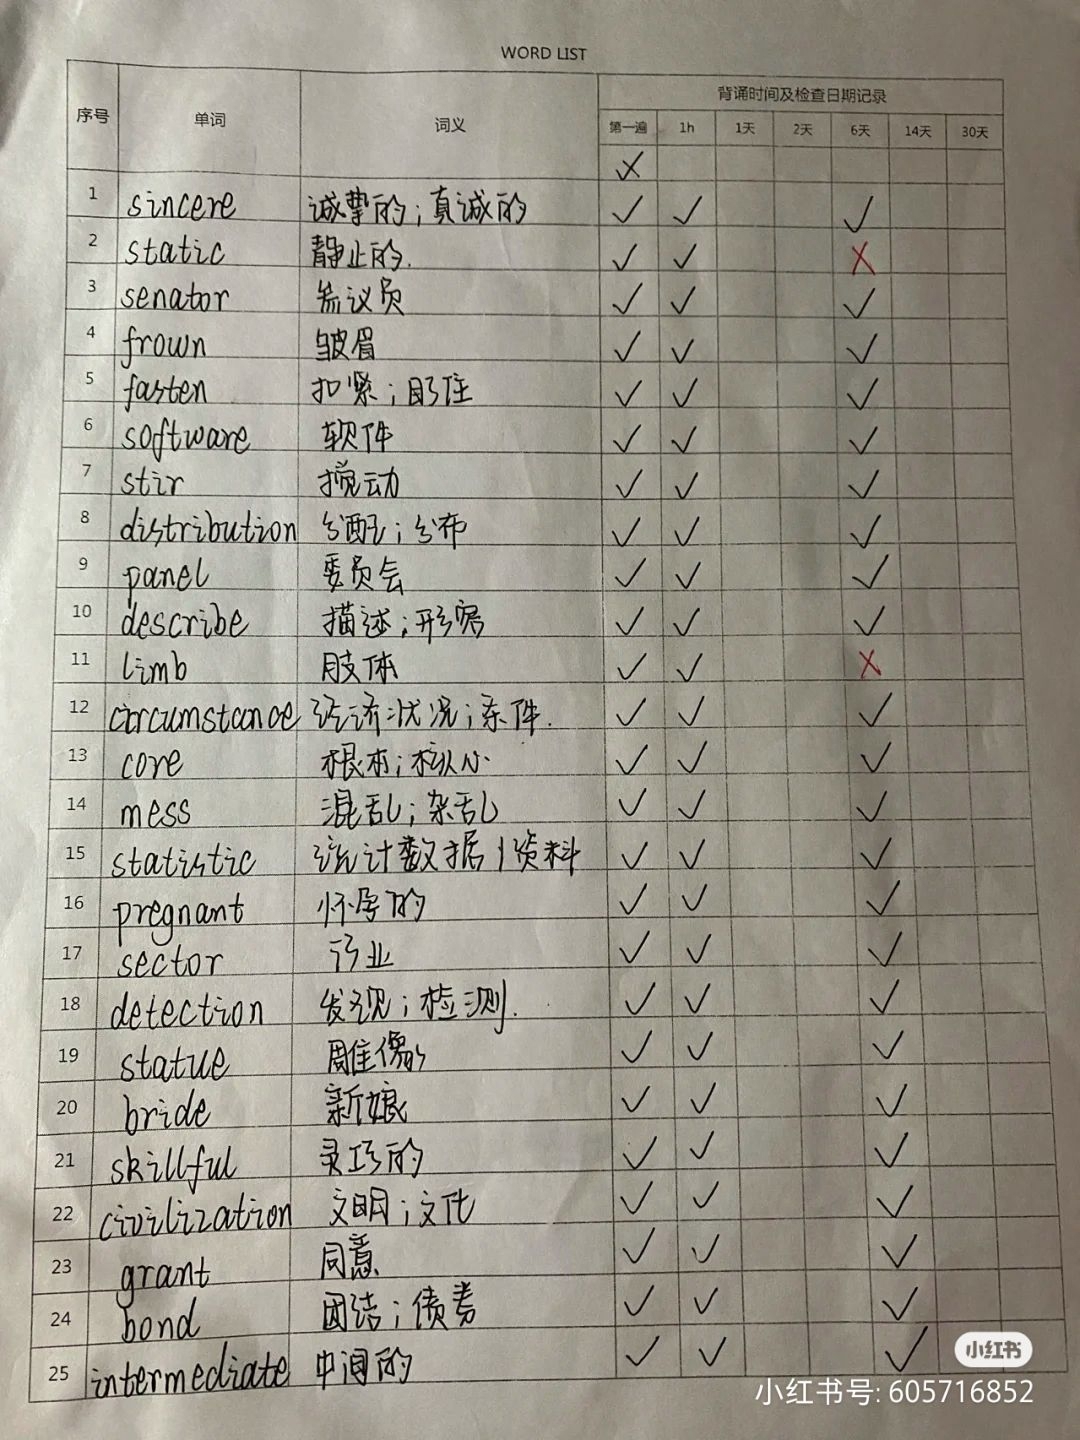 WORD LIST
序号 单词 词义 背诵时间及检查日期记录
第一遍 1h 1天 2天 6天 14天 30天
1 sincere 诚挚的；真诚的
2 static 静止的.
3 senator 参议员
4 frown 皱眉
5 fasten 扣紧；盯住
6 software 软件
7 stir 搅动
8 distribution 分配；分布
9 panel 委员会
10 describe 描述；形容
11 limb 肢体
12 circumstance 经济状况；条件.
13 core 根本；核心
14 mess 混乱；杂乱
15 statistic 统计数据/资料
16 pregnant 怀孕的
17 sector 行业
18 detection 发现；检测.
19 statue 雕像
20 bride 新娘
21 skillful 灵巧的
22 civilization 文明；文化
23 grant 同意
24 bond 团结；债券
25 intermediate 中间的
小红书
小红书号: 605716852